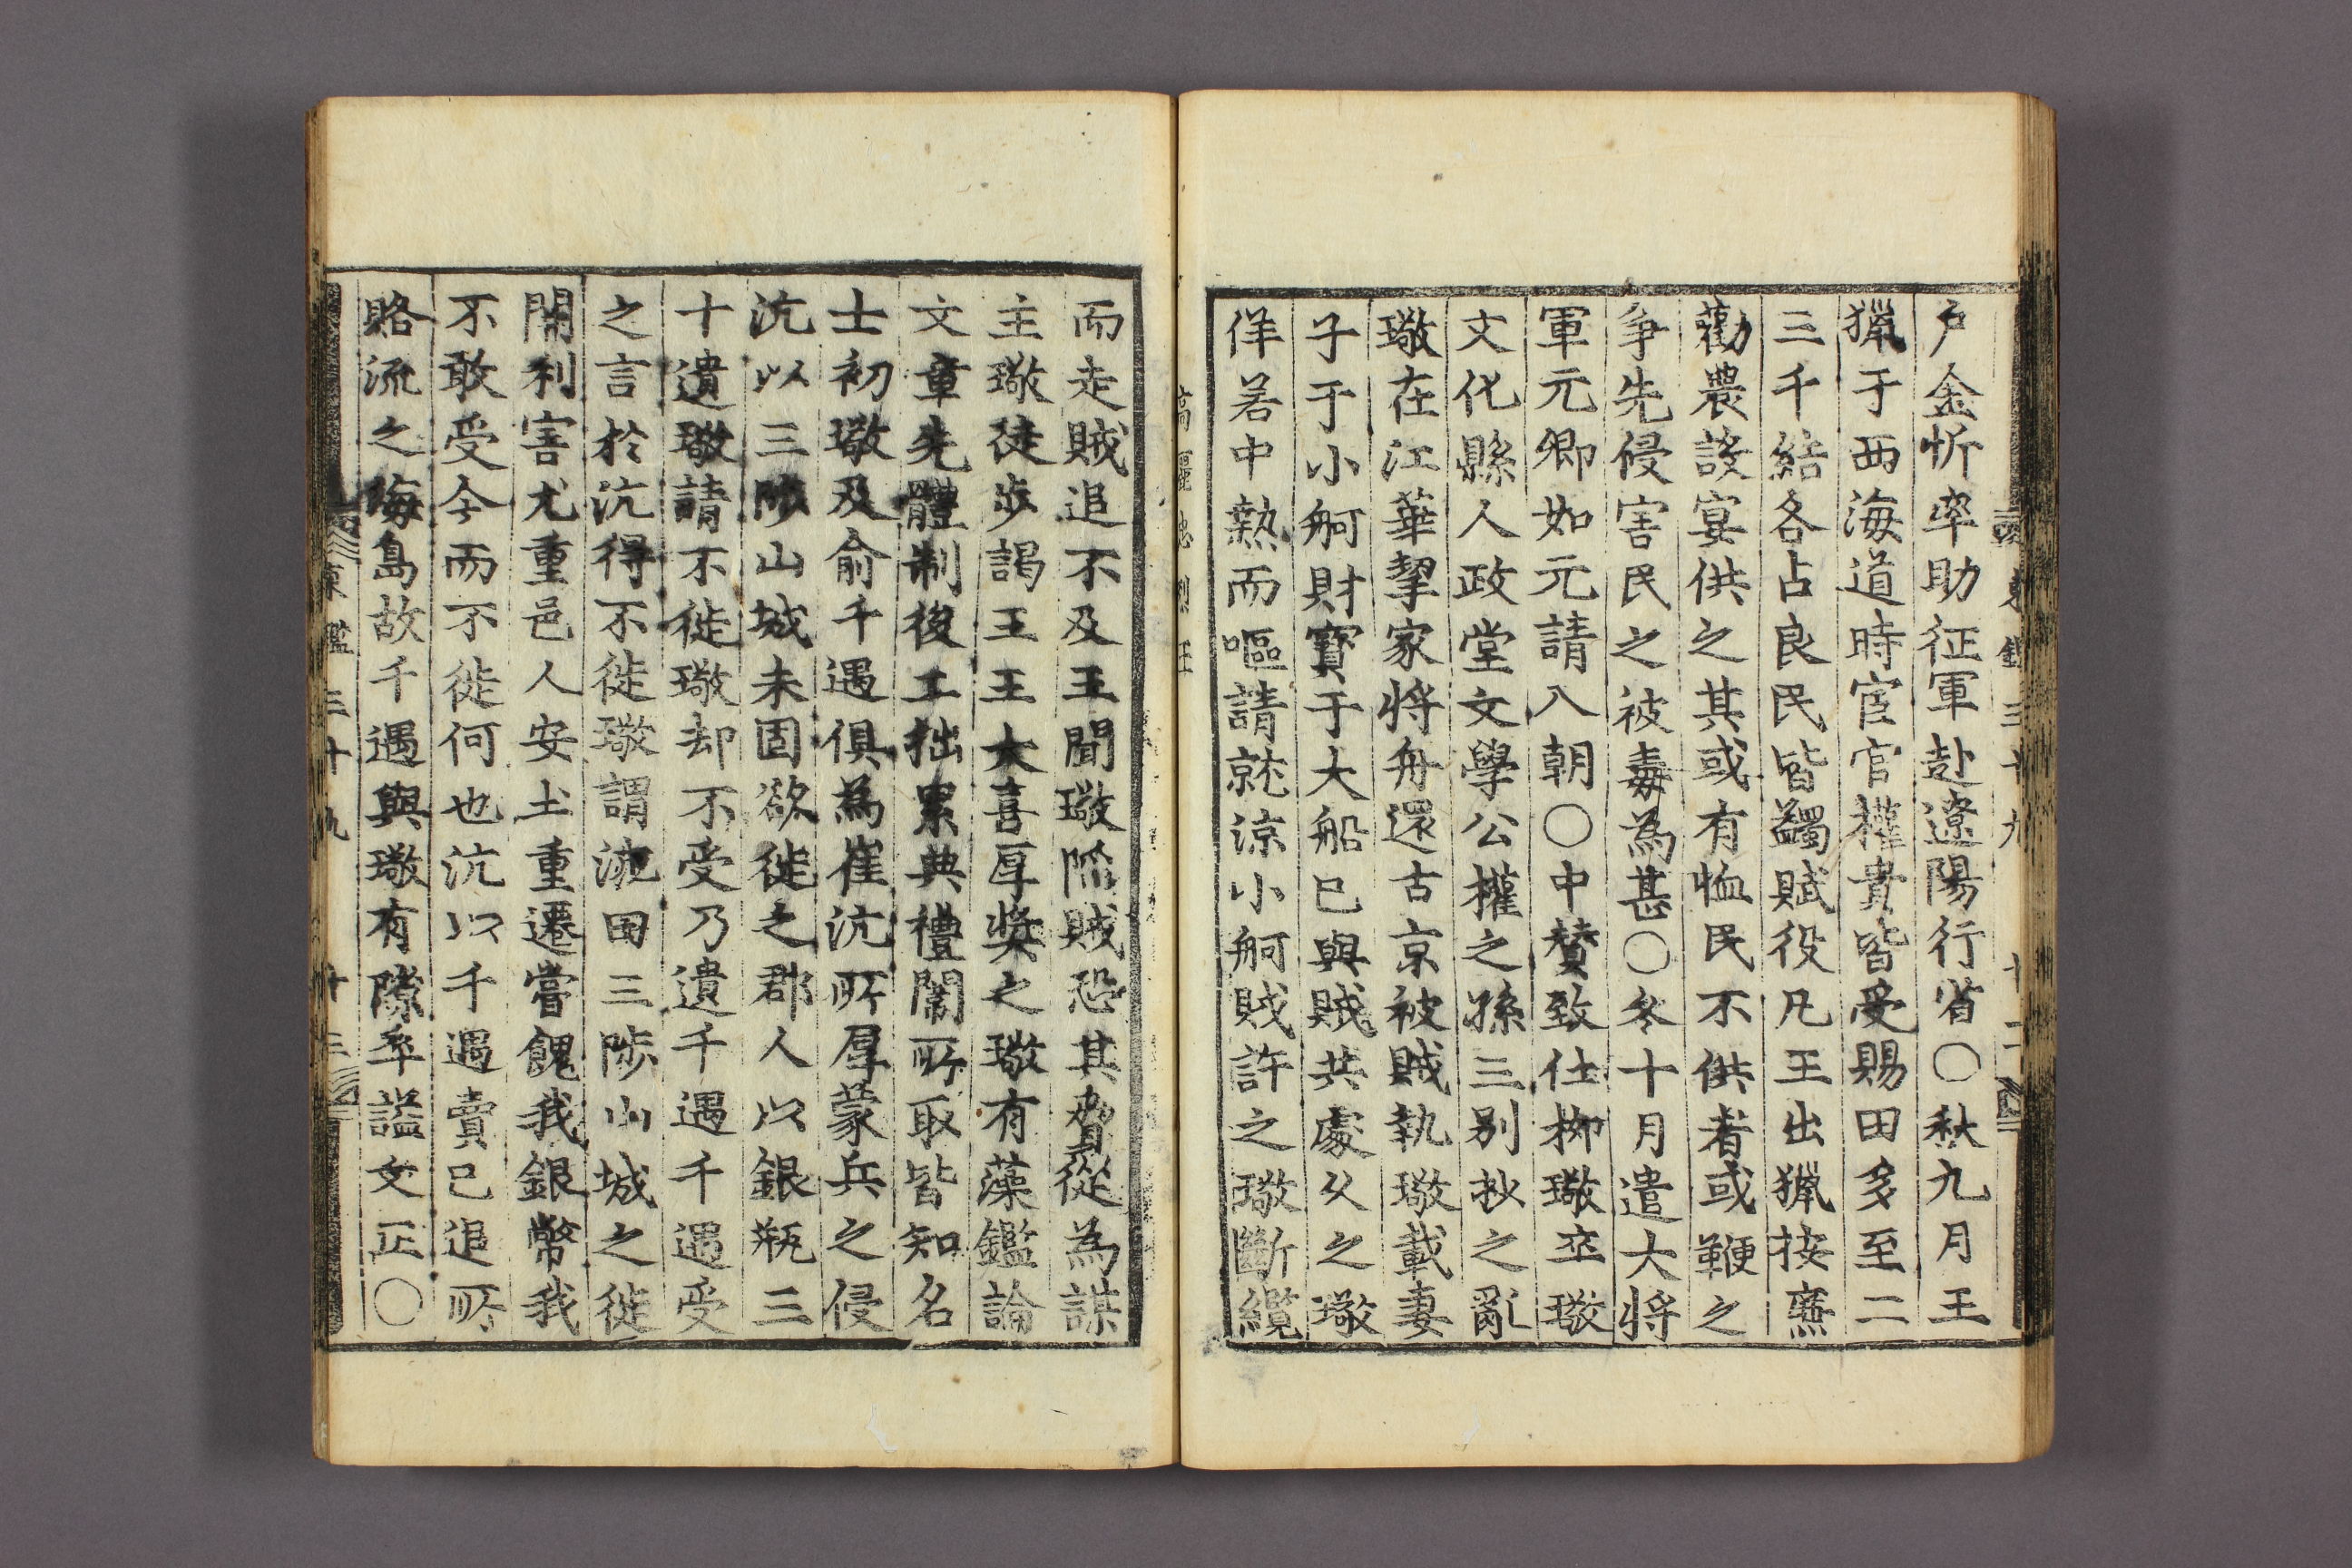 戶金忻率助征軍赴遼陽行省○秋九月王
獵于西海道時宦官權貴皆受賜田多至二
三千結各占良民皆蠲賦役凡王出獵按廉
勸農設宴供之其或有恤民不供者或鞭之
爭先侵害民之被毒爲甚○冬十月遣大將
軍元卿如元請入朝○中贊致仕柳璥卒璥
文化縣人政堂文學公權之孫三別抄之亂
璥在江華挈家將舟還古京被賊執璥載妻
子于小舸財寶于大船已與賊共處久之璥
佯若中熱而嘔請就涼小舸賊許之璥斷纜
而走賊追不及王聞璥陷賊恐其脅從爲謀
主璥徒步謁王王大喜厚奬之璥有藻鑑論
文章先體制後工拙累典禮闈所取皆知名
士初璥及俞千遇俱爲崔沆所厚蒙兵之侵
沆以三陟山城未固欲徙之郡人以銀甁三
十遺璥請不徙璥却不受乃遺千遇千遇受
之言於沆得不徙璥謂沆曰三陟山城之徙
關利害尤重邑人安土重遷嘗餽我銀幣我
不敢受今而不徙何也沆以千遇賣己追所
賂流之海島故千遇與璥有隙卒諡文正○
東鑑三十九 十三